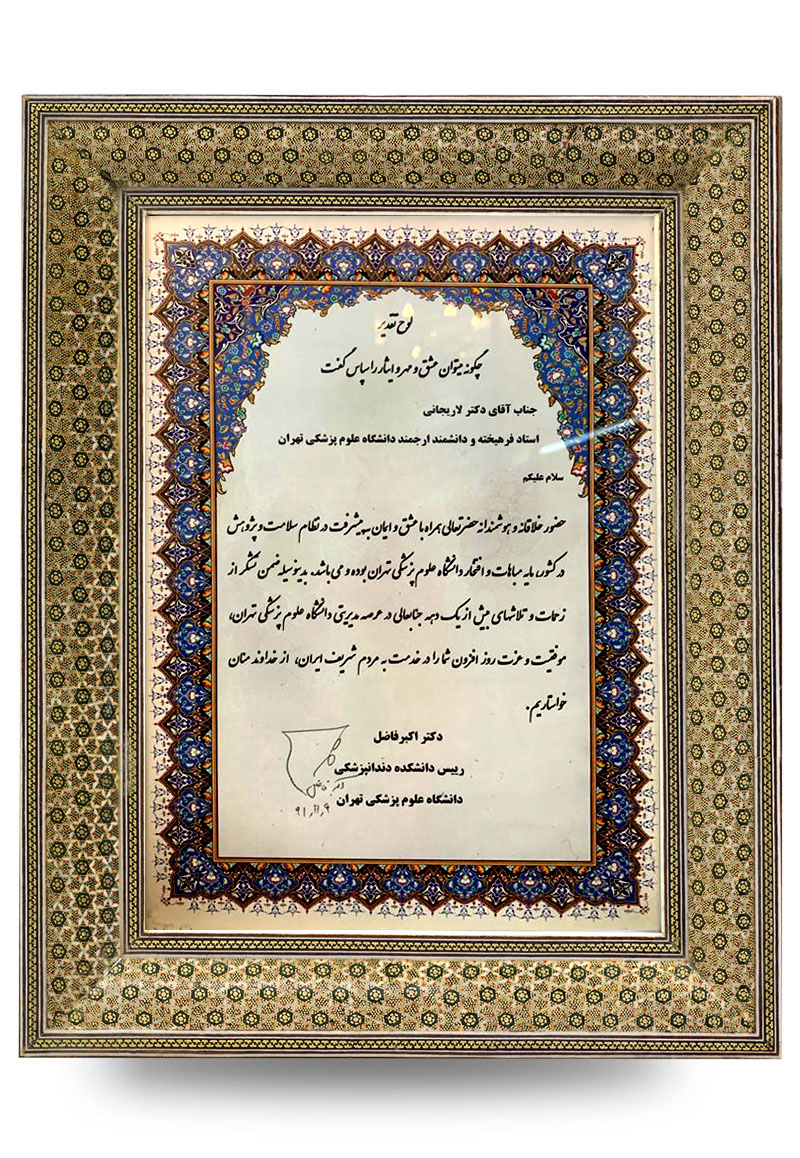 لوح تقدیر
چگونه میتوان عشق و مهر و ایثار را سپاس گفت
جناب آقای دکتر لاریجانی
استاد فرهیخته و دانشمند ارجمند دانشگاه علوم پزشکی تهران
سلام علیکم
حضور خلاقانه و هوشمندانه حضرتعالی همراه با عشق و ایمان به پیشرفت در نظام سلامت و پژوهش
در کشور، مایه مباهات و افتخار دانشگاه علوم پزشکی تهران بوده و می باشد. بدینوسیله ضمن تشکر از
زحمات و تلاشهای بیش از یک دهه جنابعالی در عرصه مدیریتی دانشگاه علوم پزشکی تهران،
موفقیت و عزت روز افزون شما را در خدمت به مردم شریف ایران، از خداوند منان
خواستاریم.
دکتر اکبر فاضل
رییس دانشکده دندانپزشکی
دانشگاه علوم پزشکی تهران
۹۱,۱۱,۹